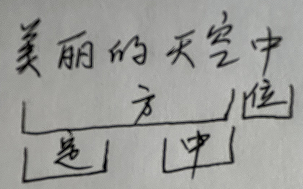 美丽的天空中
方 位
定 中